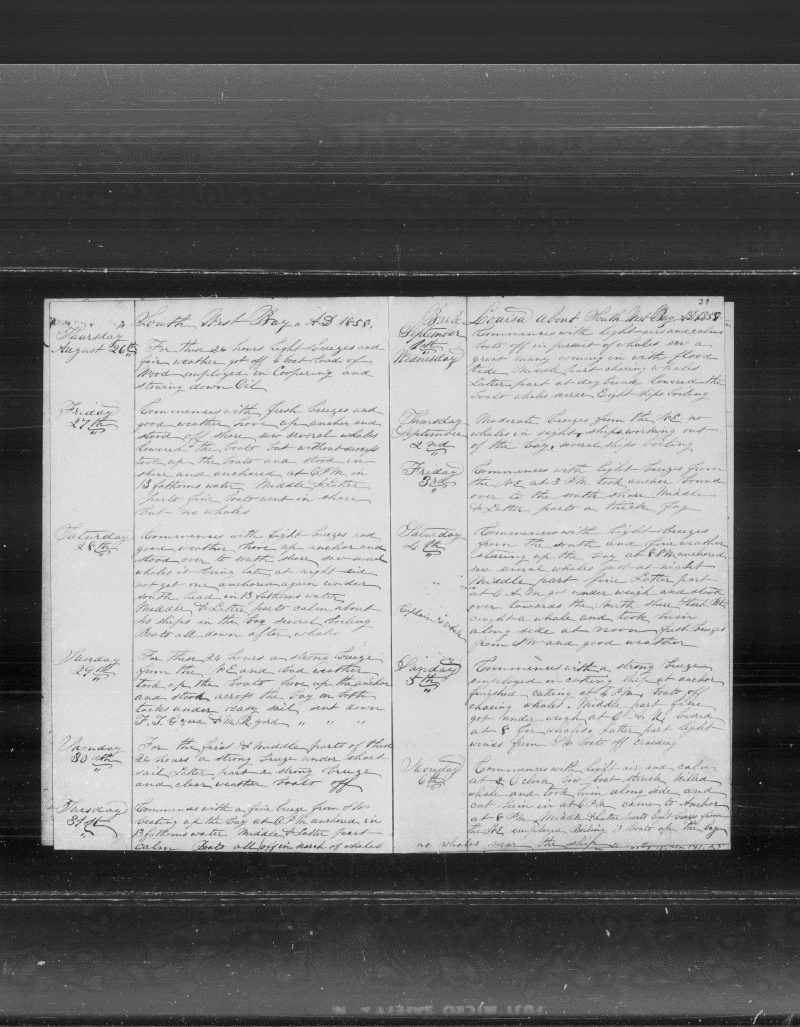 South West Bay " AD 1858.
Thursday
August 26th
For these 24 hours light breezes and
fair weather got off 4 boat loads of
Wood employed in Coopering and
stowing down Oil
Friday
27th
Commences with fresh breezes and
good weather hove up anchor and
stood off shore saw several whales
lowered the boats but without success
took up the boats and stood in
shore and anchored at 6 PM in
13 fathoms water Middle & Latter
parts five boats went in shore
but no whales
Saturday
28th
Commences with light breezes and
good weather hove up anchor and
stood over to south shore saw
whales it being late at night did
not get one anchored again under
south head in 13 fathoms water
Middle & Latter parts calm about
40 ships in the bay several boiling
Boats all down after whales
Sunday
29th
For these 24 hours a strong breeze
from the NE and bad weather
took up the boats hove up the anchor
and stood across the bay on both
tacks under easy sail sent down
F. T. G yard & M. R. yard " " "
Monday
30th
For the first & middle parts of these
24 hours a strong breeze under short
sail Latter part a strong breeze
and clear weather boats off
Tuesday
31st
Commences with a fine breeze from
beating up the bay at 6 PM anchored in
13 fathoms water Middle & Latter part
calm Boats all off in search of whales
29
Bark Louisa about South West Bay AD 1858
September
1st
Wednesday
Commences with light airs and calms
boats off in pursuit of whales saw a
great many coming in with flood
tide Middle part chasing whales
Latter part at day break lowered the
boats whales scarce Eight ships boiling
Thursday
September
2nd
Moderate breezes from the NE no
whales in sight, ships working out
of the bay, several ships boiling
Friday
3rd
Commences with light breezes from
the NE at 3 PM took anchor bound
over to the south shore Middle
& Latter parts a thick fog
Saturday
4th
Commences with light breezes
from the south and fine weather
steering up the bay at 8 PM anchored
saw several whales just at night
Middle part fine Latter part
at 6 A.M got under weigh and stood
over towards the North shore
caught a whale and took him
along side at noon fresh breezes
from SW and good weather
Captain whale
Sunday
5th
Commences with a strong breeze
employed in cutting ship at anchor
finished cutting at 4 PM, boats off
chasing whales. Middle part fine
got under weigh at 6 A M,
at 8 for whales, Latter part light
winds from SW boats off cruising
Monday
6th
Commences with light air and calm
at 2 O clock bow boat struck killed
whale and took him along side and
cut him in at 6 PM came to Anchor
at 8 PM, Middle & Latter parts light breezes from
the NE employed Boiling 3 boats up the bay
no whales near the ship